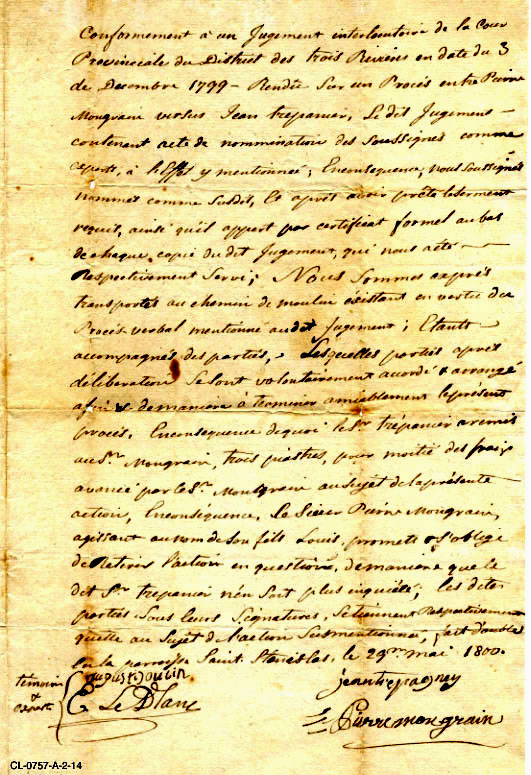 Conformement à un Jugement interlocutoire de la Cour
Provinciale du District des trois Rivieres en date du 3
de Decembre 1799 – Rendüe Sur un Procés entre Pierre
Mongrain versus Jean trepanier, Le dit Jugement –
contenant acte de nommination des Soussignés comme
experts, à l'effet y mentionneé; Enconsequence, nous soussignés
nommés comme Susdit, Et aprèt avoir prété leserment
requit, ainsi qu'il appert par certificat formel au bas
de chaque copie du dit Jugement, qui nous a eté
Respectivement Servi; Nous Sommes exprés
transportés au chemin de moulin éxistant en vertu du
Procés verbal mentionné audit Jugement; Etant –
accompagnés des parties, Lesquelles parties aprèt
déliberation Se sont volontairement acordé & arrangé
de maniere à terminer amiablement leprésent
procés, Enconsequence dequoi le Sr. trépanier aremis
au Sr. Mongrain, trois piastres, pour moitié des fraix
avancé par le Sr. Montgrain au Sujet de laprésente
action, Enconséquence, Le Sieur Pierre Mongrain,
agissant au nom de Son fils Louis, promets & S'oblige
de Retirer l'action en question, demaniere que le
dit Sr. trepanier n'en Soit plus inquiété; les dites
parties Sous leurs Signatures, Setiennent Respectivement
quitte au Sujet de l'action Susmentionneé, fait double
en la parroisse Saint Stanislas, le 29me. mai 1800.
temoins
&
experts
august: Joubin
E. Le Blanc
jean trepagney
Pierre mongrain
CL-0757-A-2-14